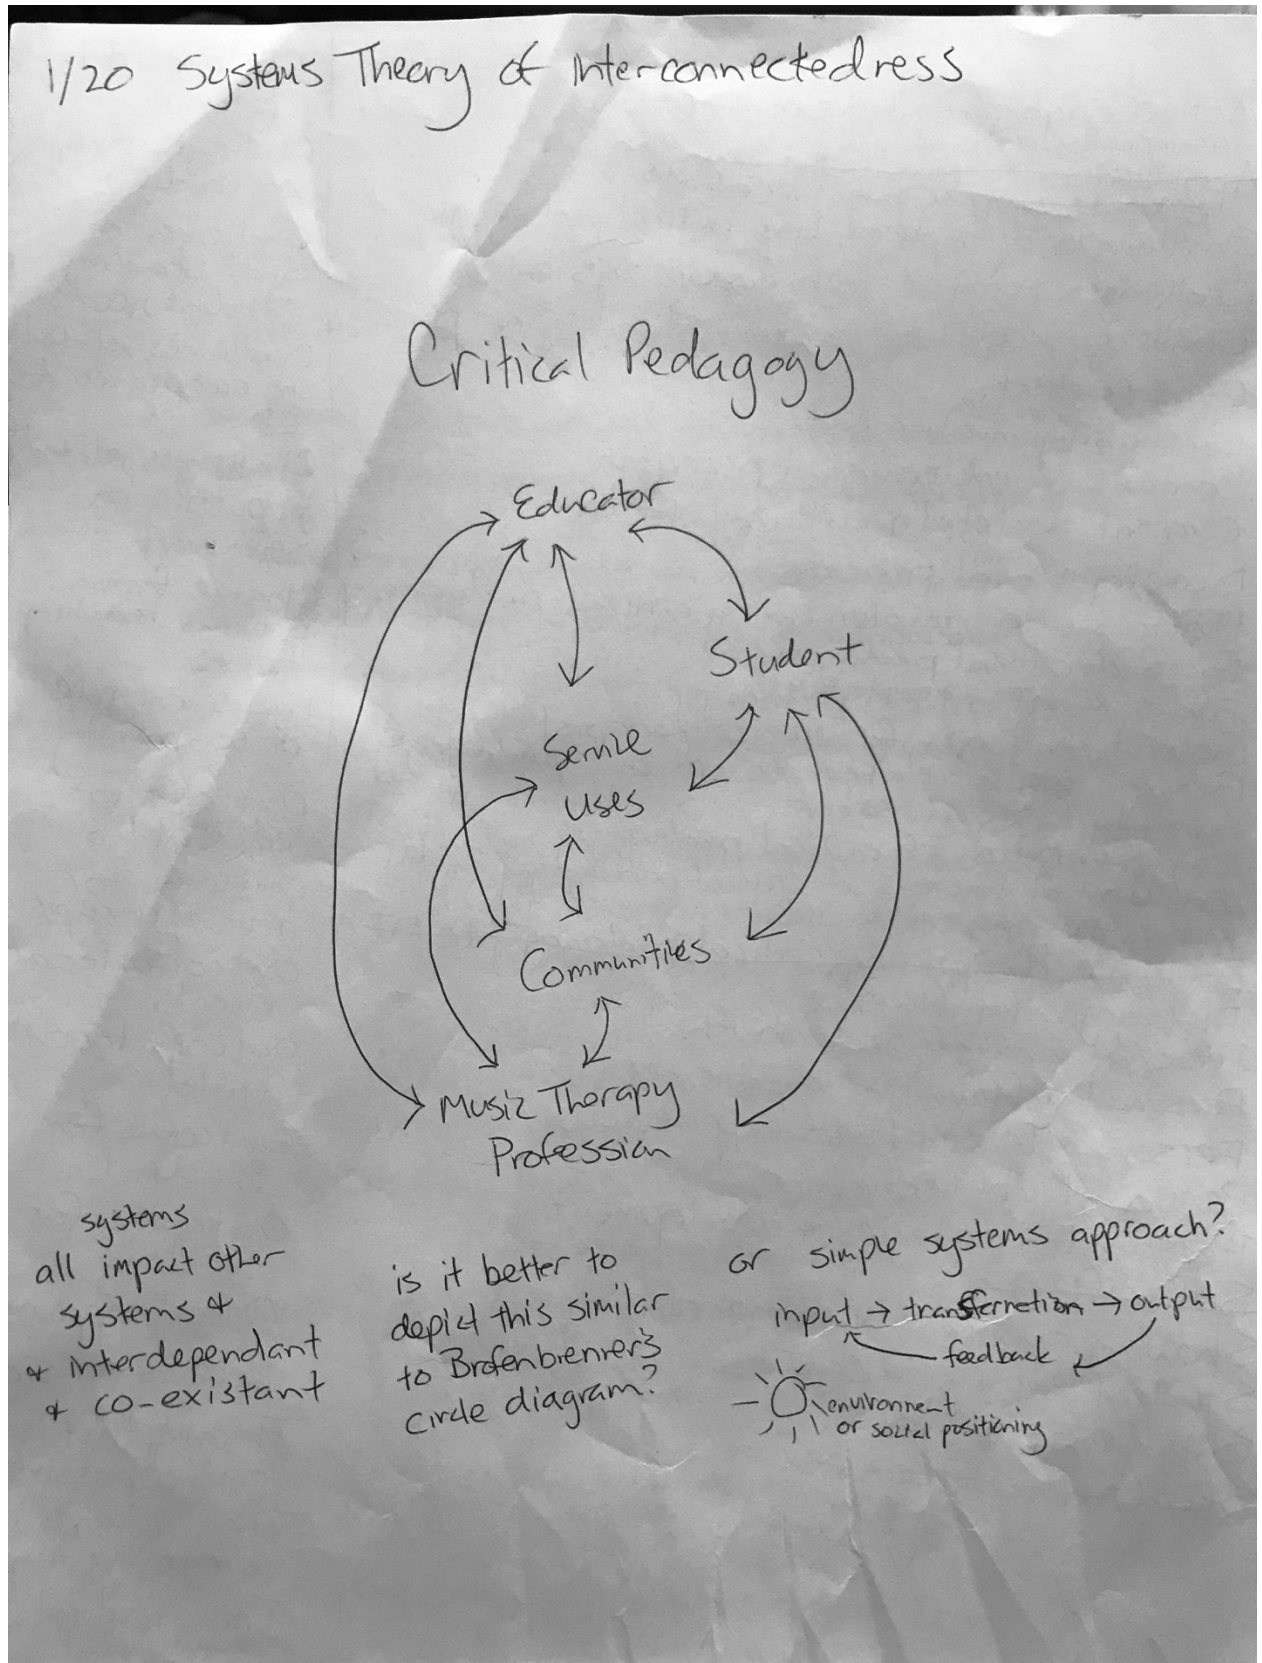 1/20 Systems Theory of Interconnectedness
Critical Pedagogy
Educator
Student
Service
Uses
Communities
Music Therapy
Profession
systems
all impact other
systems &
& interdependant
& co-existant
is it better to
depict this similar
to Brofenbrenner's
circle diagram?
or simple systems approach?
input → transformation → output
feedback
environment
or social positioning